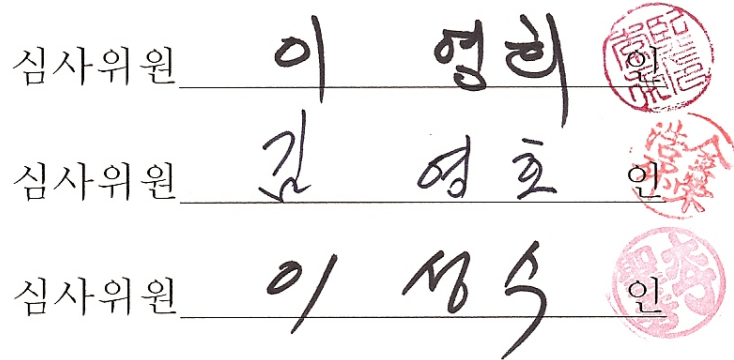 심사위원 이 영희 인
심사위원 김 영호 인
심사위원 이 성수 인